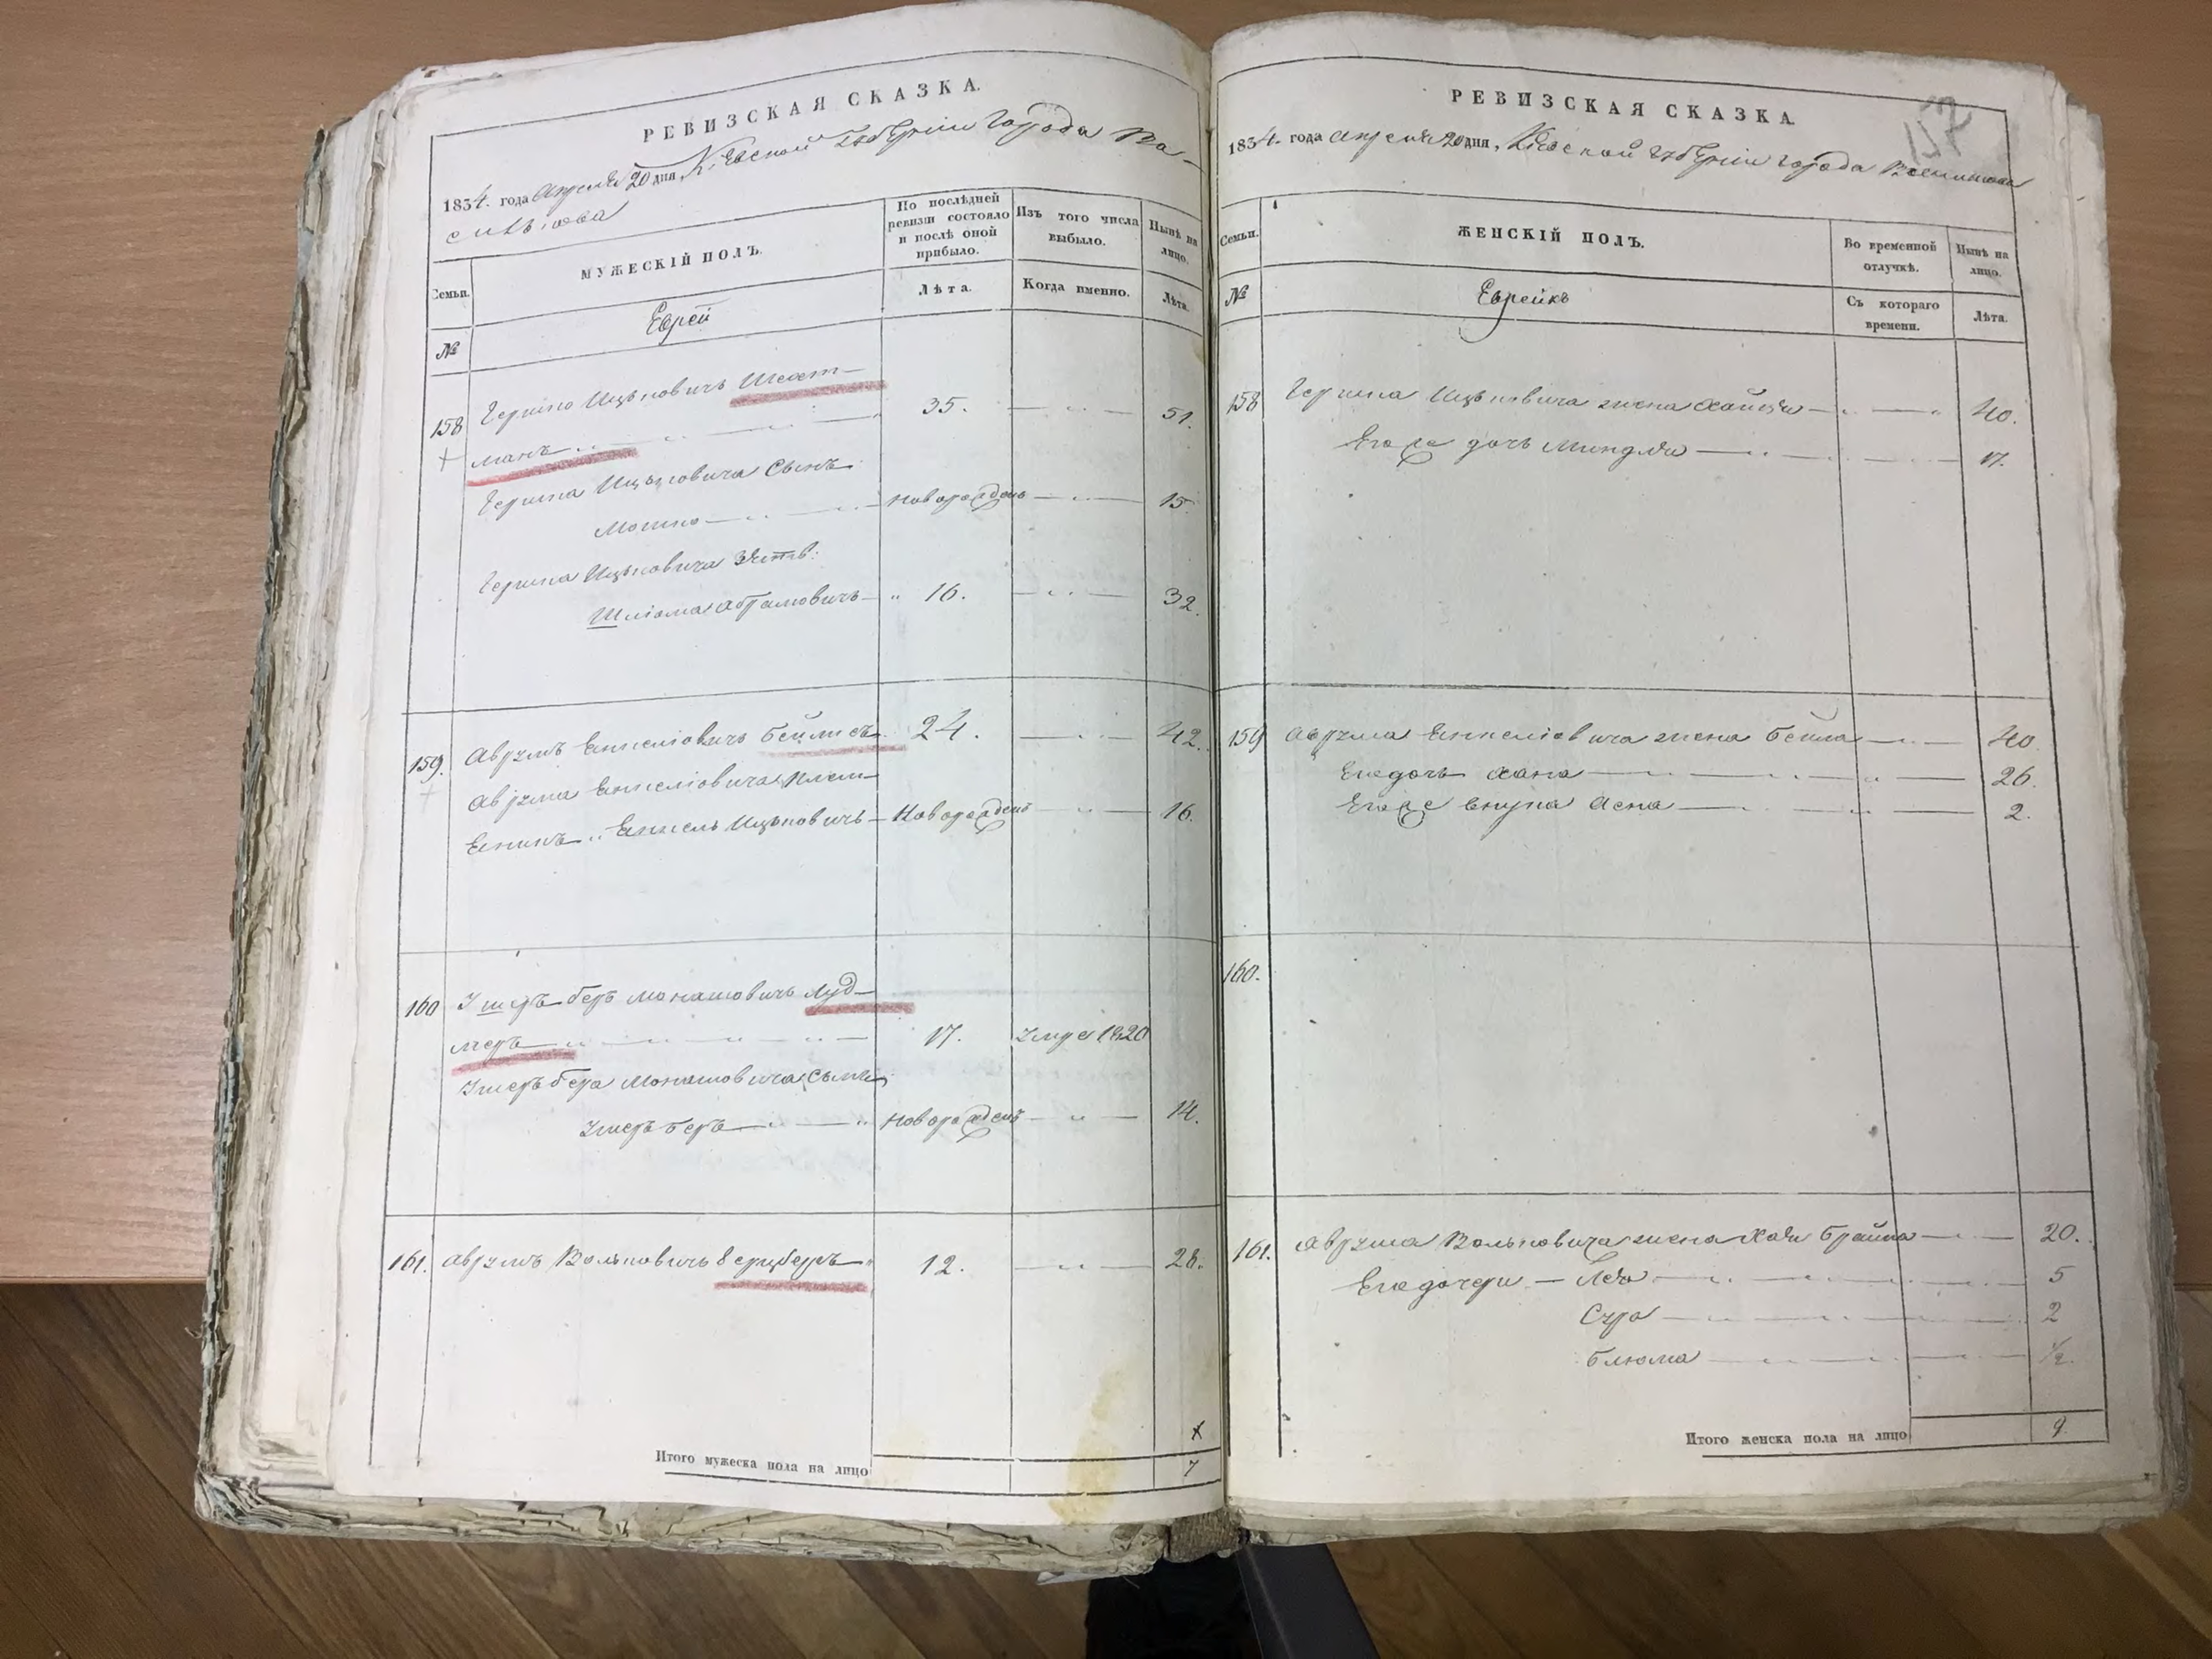 РЕВИЗСКАЯ СКАЗКА.
1834. года апреля 20 дня, Кіевской губерніи города Ва-
силькова
Семьи.
МУЖЕСКІЙ ПОЛЪ.
По послѣдней ревизіи состояло и послѣ оной прибыло.
Изъ того числа выбыло.
Нынѣ на лицо.
№
Еврей
Лѣта.
Когда именно.
Лѣта.
158
Гершко Ицьковичъ Шехт-
манъ
35.
51.
Гершка Ицьковича Сынъ
Мошко
новорожденъ
15.
Гершка Ицьковича Зять:
Шліома Абрамовичъ
16.
32.
159.
Аврумъ Енкеліовичъ Бейлисъ
24.
42.
Аврума Енкеліовича плем-
Енникъ Енкель Ицьковичъ
Новорожденъ
16.
160
Іцхръ беръ Монашовичъ Луд-
меръ
17.
Умре 1820
бера Монашовича Сынъ
беръ
новорожденъ
14.
161.
Аврумъ Вольковичъ
12.
28.
Итого мужеска пола на лицо
7
РЕВИЗСКАЯ СКАЗКА.
157
1834. года апреля 20 дня, Кіевской губерніи города Василькова
Семьи.
ЖЕНСКІЙ ПОЛЪ.
Во временной отлучкѣ.
Нынѣ на лицо.
№
Еврейкъ
Съ котораго времени.
Лѣта.
158
Гершка Ицьковича жена
40.
Егоже дочь Миндля
17.
159
Аврума Енкеліовича жена Бейла
40.
Егодочь Хана
26.
Егоже внука Асна
2.
160.
161.
Аврума Вольковича жена Хая Брайна
20.
Егодочери — Лея
5
Сура
2
Блюма
1/2.
Итого женска пола на лицо
9.